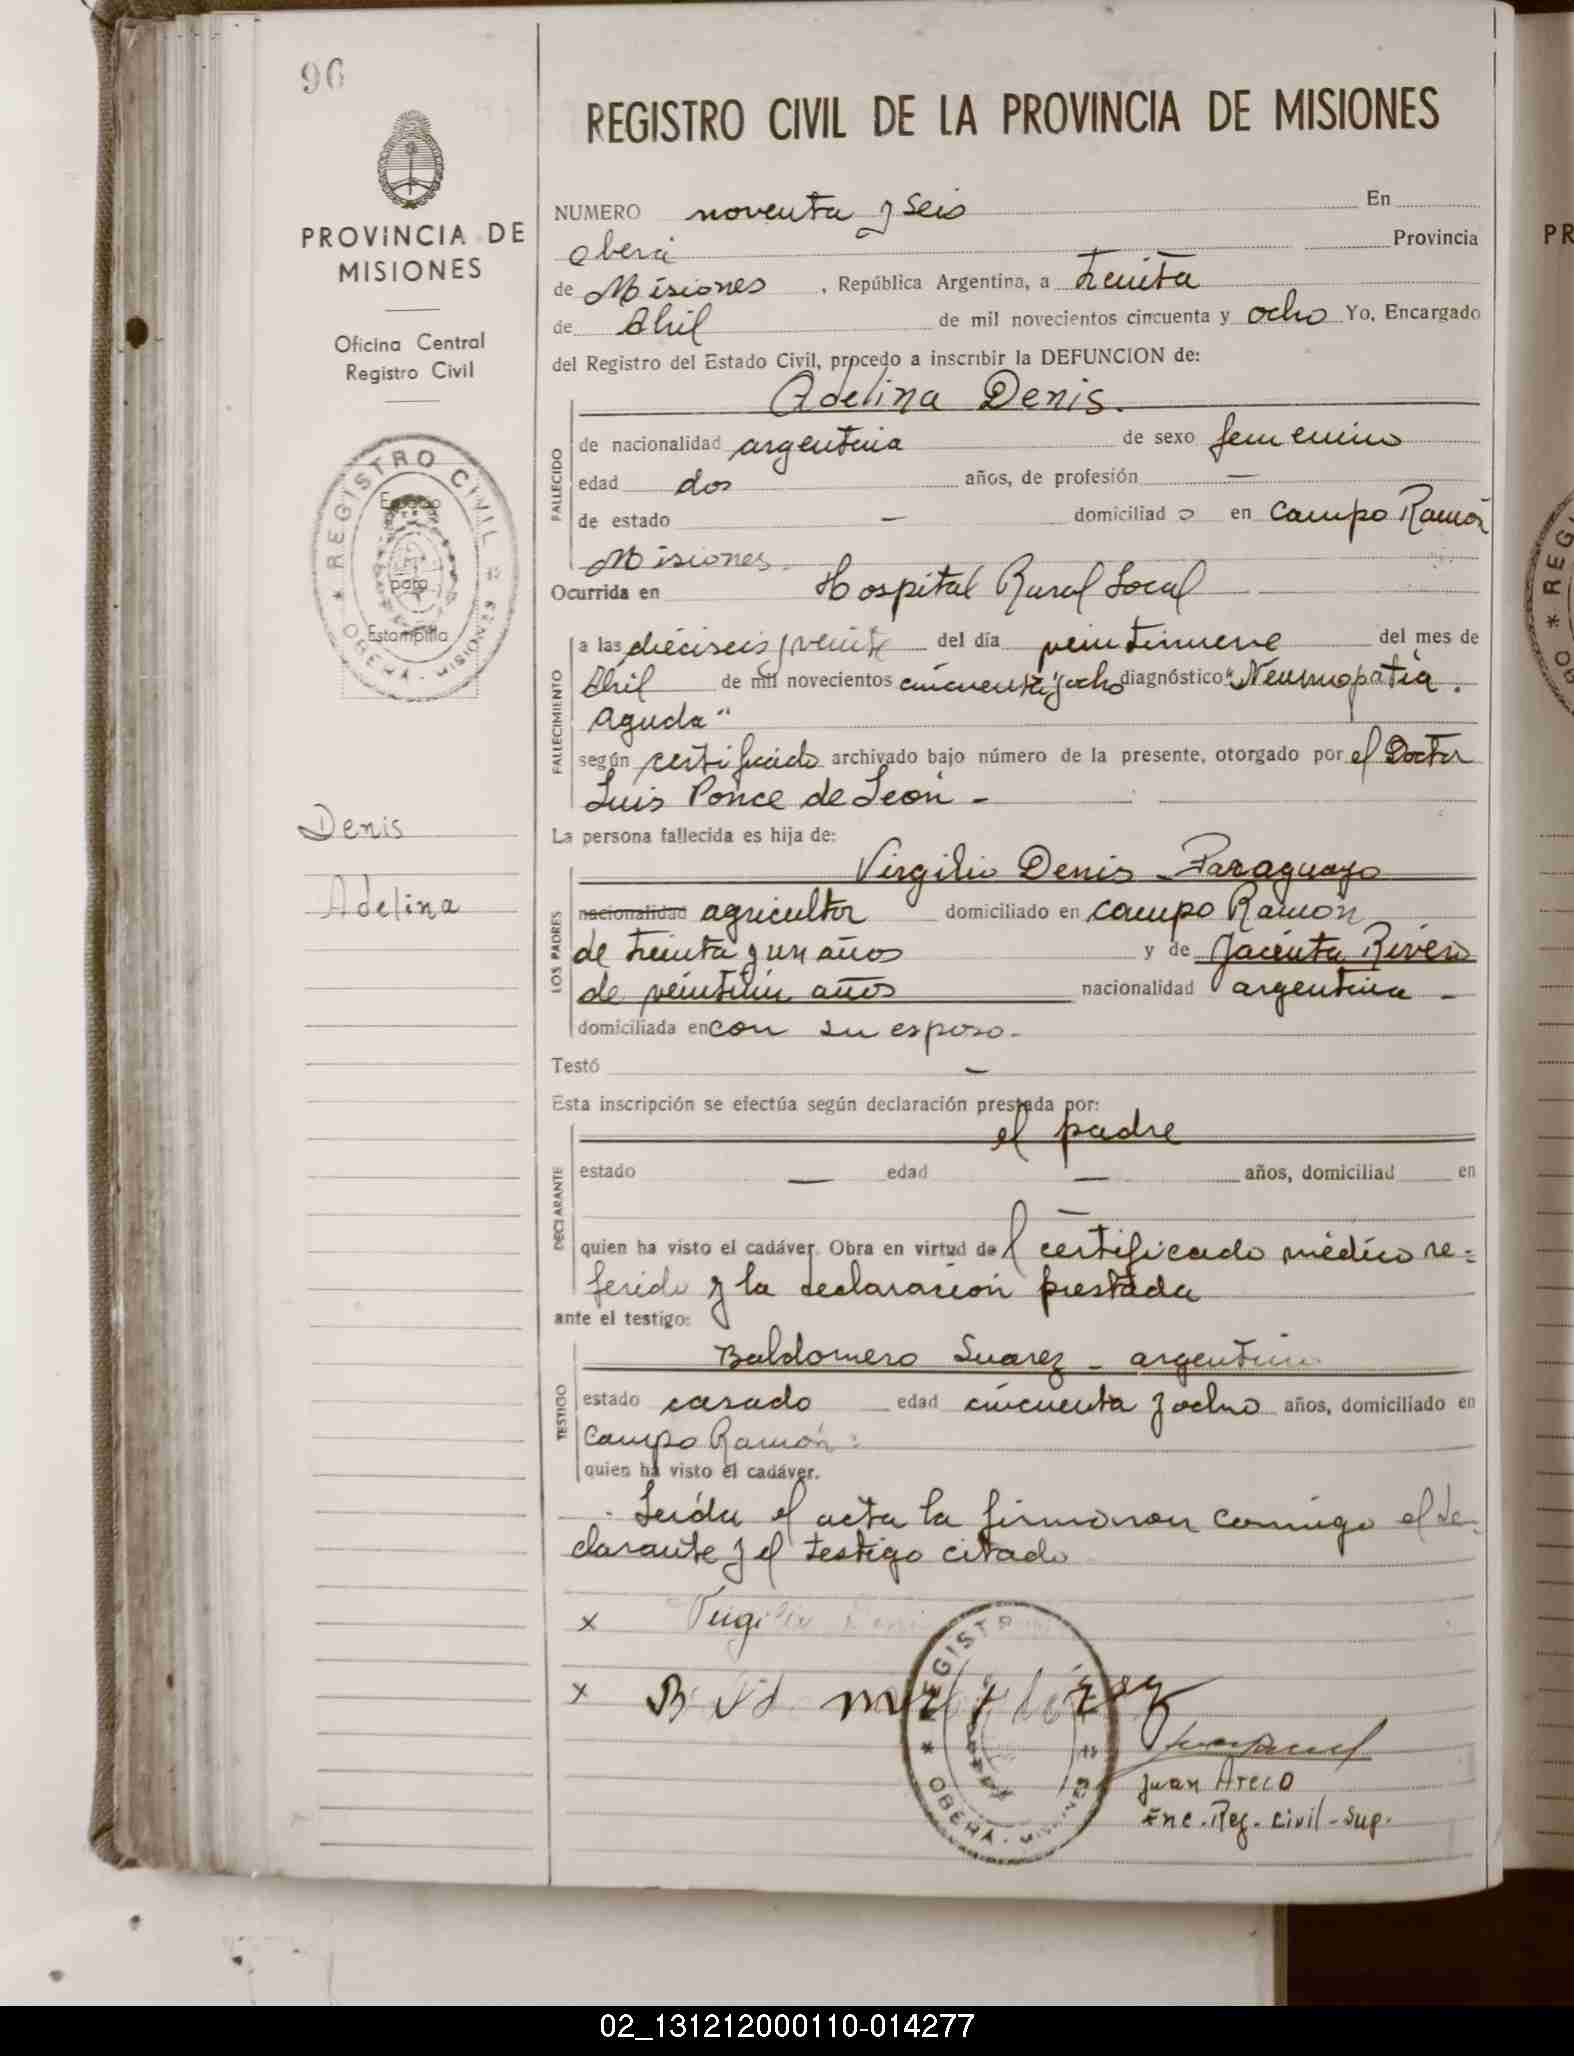 96
REGISTRO CIVIL DE LA PROVINCIA DE MISIONES
PROVINCIA DE
MISIONES
Oficina Central
Registro Civil
* REGISTRO CIVIL * OBERA - MISIONES
Espacio
para
Estampilla
Denis
Adelina
NUMERO noventa y seis En
Oberá Provincia
de Misiones, República Argentina, a treinta
de Abril de mil novecientos cincuenta y ocho Yo, Encargado
del Registro del Estado Civil, procedo a inscribir la DEFUNCION de:
Adelina Denis.
FALLECIDO
de nacionalidad argentina de sexo femenino
edad dos años, de profesión —
de estado — domiciliado en Campo Ramón
Misiones.
Ocurrida en Hospital Rural Local
FALLECIMIENTO
a las dieciseis y veinte del día veintinueve del mes de
Abril de mil novecientos cincuenta y ocho diagnóstico "Neumopatía
aguda"
según certificado archivado bajo número de la presente, otorgado por el Doctor
Luis Ponce de León -
La persona fallecida es hija de:
LOS PADRES
Virgilio Denis - Paraguayo
nacionalidad agricultor domiciliado en campo Ramón
de treinta y un años y de Jacinta Rivero
de veintiun años nacionalidad argentina -
domiciliada en con su esposo.
Testó —
Esta inscripción se efectúa según declaración prestada por:
el padre
DECLARANTE
estado — edad — años, domiciliad en
—
quien ha visto el cadáver. Obra en virtud del certificado médico re=
ferido y la declaración prestada
ante el testigo:
TESTIGO
Baldomero Suarez - argentino
estado casado edad cincuenta y ocho años, domiciliado en
Campo Ramón:
quien ha visto el cadáver.
Leída el acta la firmaron conmigo el de-
clarante y el testigo citado
x Virgilio Denis
x
* REGISTR
OBERA - MISIONES
Juan Areco
Enc. Reg. Civil - Sup.
PR
02_131212000110-014277